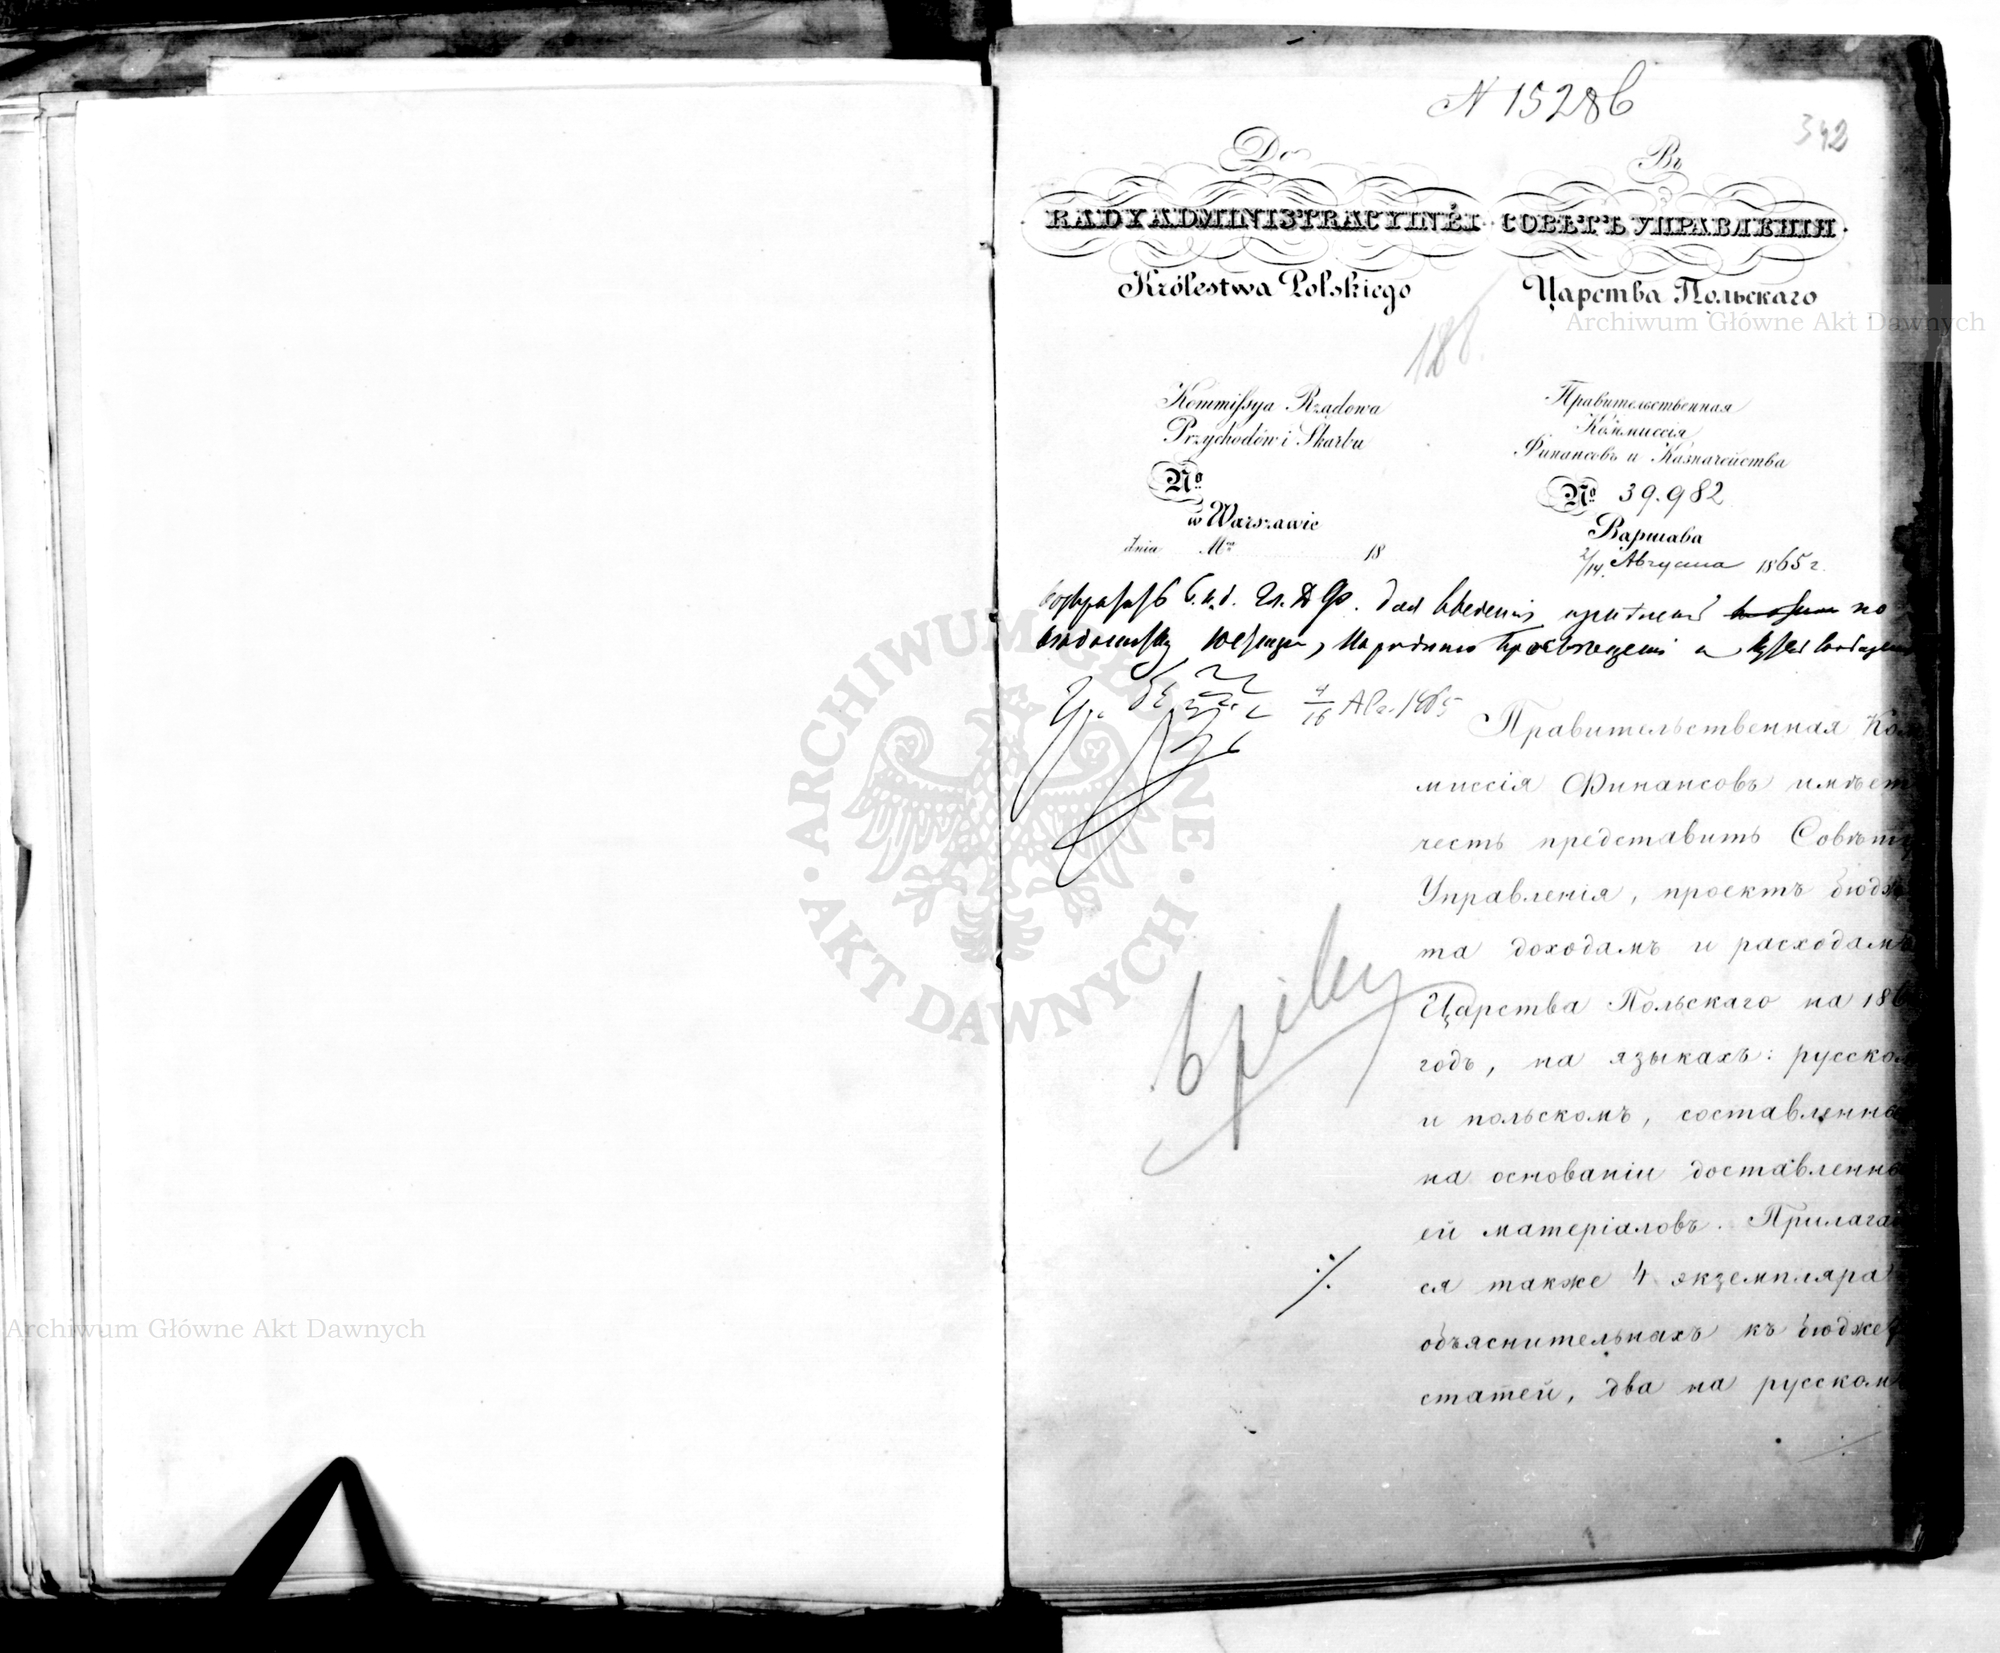 N 15286
342
Do
RADY ADMINISTRACYINÉI
Królestwa Polskiego
Въ
СОВѢТЪ УПРАВЛЕНІЯ
Царства Польскаго
188
Kommissya Rządowa
Przychodów i Skarbu
No
w Warszawie
dnia Mca 18
Правительственная
Коммиссія
Финансовъ и Казначейства
No 39.982
Варшава
2/14 Августа 1865 г.
для введенія по
Народнаго Просвѣщенія и
4/16 Авг. 1865
Правительственная Ком
миссія Финансовъ имѣет
честь представить Совѣту
Управленія, проектъ бюдже
та доходамъ и расходамъ
Царства Польскаго на 186
годъ, на языкахъ: русском
и польскомъ, составленны
на основаніи доставленны
ей матеріаловъ. Прилага
ся также 4 экземпляра
объяснительныхъ къ бюджет
статей, два на русском
Archiwum Główne Akt Dawnych
Archiwum Główne Akt Dawnych
ARCHIWUM GŁÓWNE AKT DAWNYCH